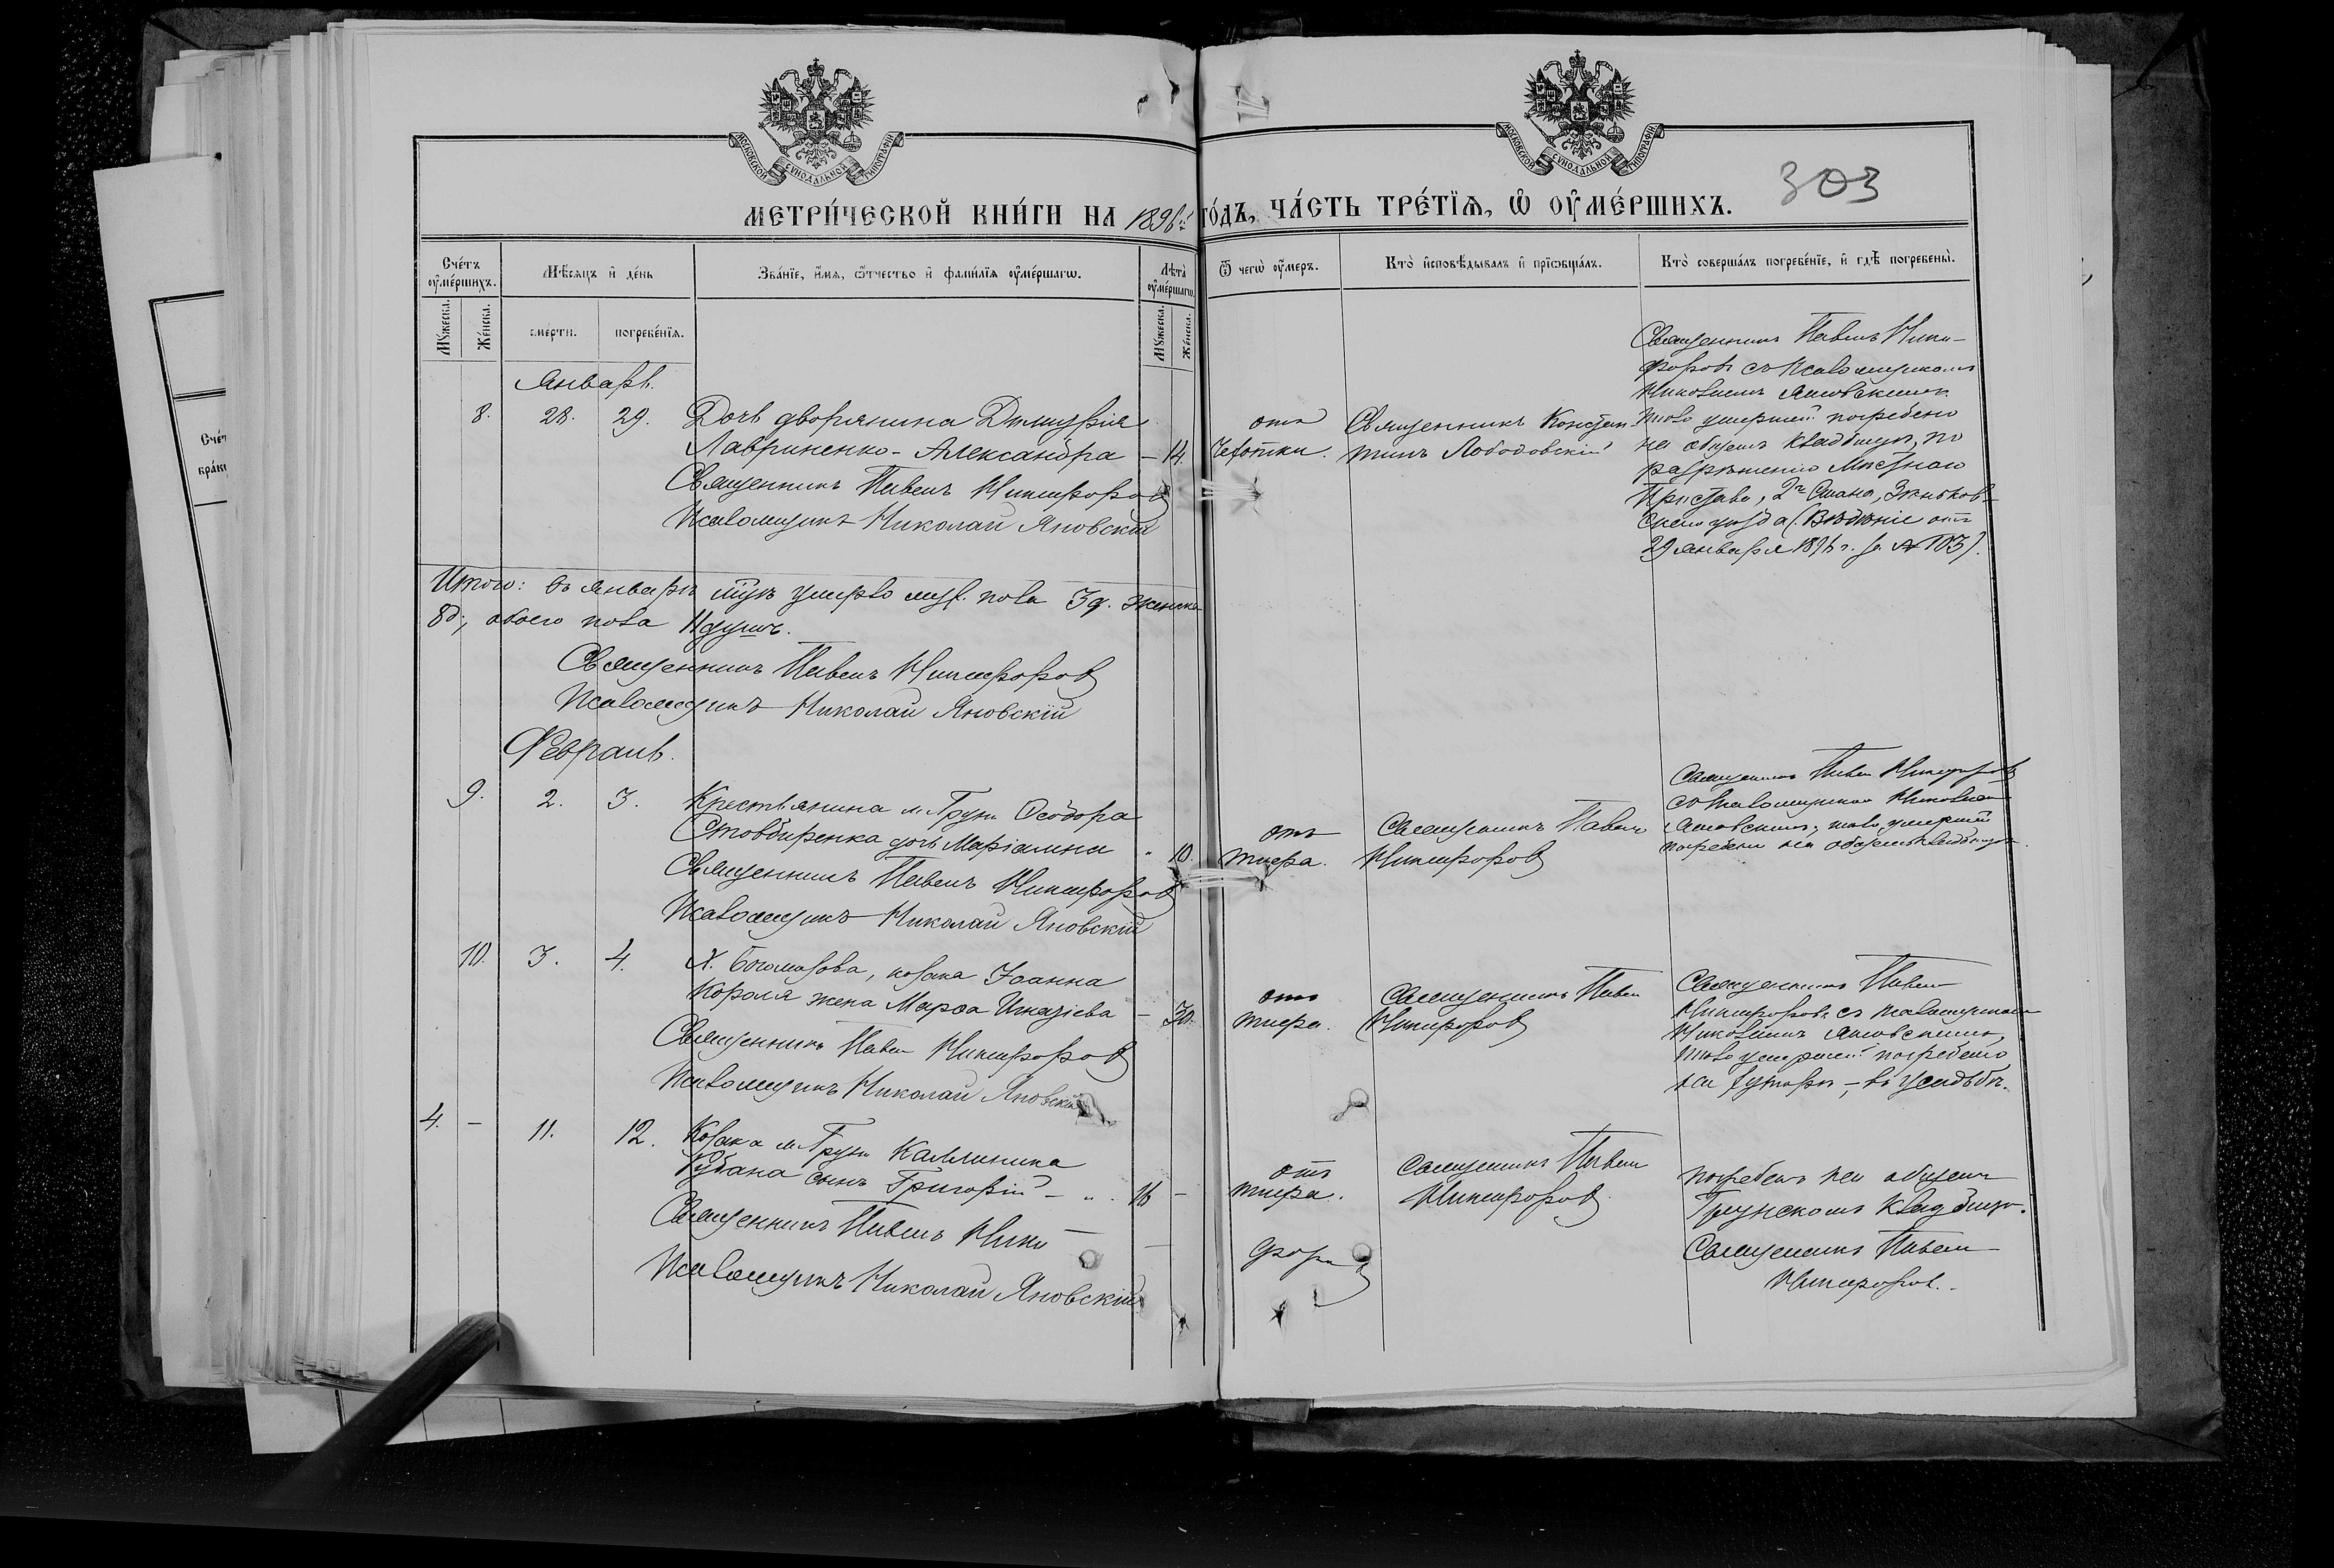 МОСКОВСКОЙ СѴНОДАЛЬНОЙ ТИПОГРАФІИ
МОСКОВСКОЙ СѴНОДАЛЬНОЙ ТИПОГРАФІИ
303
МЕТРИ́ЧЕСКОЙ КНИ́ГИ НА 1896й ГО́ДЪ, ЧА́СТЬ ТРЕ́ТЇѦ, Ѽ ОУ҆МЕ́РШИХЪ.
Сче́тъ оу҆ме́ршихъ.
Мѣ́сѧцъ и҆ де́нь
Зва́нїе, и҆́мѧ, ѻ҆́тчество и҆ фами́лїѧ оу҆ме́ршагѡ.
Лѣта̀ оу҆ме́ршагѡ.
Ѿ чегѡ̀ оу҆́меръ.
Кто̀ и҆сповѣ́дывалъ и҆ прїѡбща́лъ.
Кто̀ соверша́лъ погребе́нїе, и҆ гдѣ̀ погребены̀.
Мꙋ́жеска.
Же́нска.
сме́рти.
погребе́нїѧ.
Мꙋ́жеска.
Же́нска.
Январь.
8. 28. 29. Дочь дворянина Димитрія
Лавриненко-Александра – 14.
Священникъ Павелъ Никифоровъ
Псаломщикъ Николай Яновскій
отъ
Чехотки.
Священникъ Констан-
тинъ Лободовскій
Священникъ Павелъ Ники-
форовъ съ псаломщикомъ
Николаемъ Яновскимъ.
Тѣло умершей погребено
на общемъ кладбищѣ, по
разрѣшенію Мѣстнаго
Пристава, 2го Стана, Зѣньков-
скаго уѣзда (Вѣдѣніе отъ
29 января 1896 г. за № 103).
Итого: въ январѣ м‑цѣ умерло муж. пола 3 д. женска
8 д., обоего пола 11 душъ.
Священникъ Павелъ Никифоровъ
Псаломщикъ Николай Яновскій
Февраль.
9. 2. 3. Крестьянина м. Груни Ѳеодора
Стовбиренка дочь Маріамна " 10.
Священникъ Павелъ Никифоровъ
Псаломщикъ Николай Яновскій
отъ
тифа.
Священникъ Павелъ
Никифоровъ
Священникъ Павелъ Никифоровъ
съ псаломщикомъ Николаемъ
Яновскимъ, тѣло умершей
погребено на общемъ кладбищѣ.
10. 3. 4. Х. Богомазова, козака Іоанна
Короля жена Марѳа – 30.
Священникъ Павелъ Никифоровъ
Псаломщикъ Николай Яновскій
отъ
тифа.
Священникъ Павелъ
Никифоровъ
Священникъ Павелъ
Никифоровъ съ псаломщикомъ
Николаемъ Яновскимъ,
тѣло умершей погребено
на хуторѣ, – въ усадьбѣ.
4. – 11. 12. Козака м. Груни Каллиника
Рубана сынъ Григорій – " 16 –
Священникъ Павелъ Ники –
форовъ
Псаломщикъ Николай Яновскій
отъ
тифа.
Священникъ Павелъ
Никифоровъ.
погребенъ на общемъ
Грунскомъ кладбищѣ.
Священникъ Павелъ
Никифоровъ.